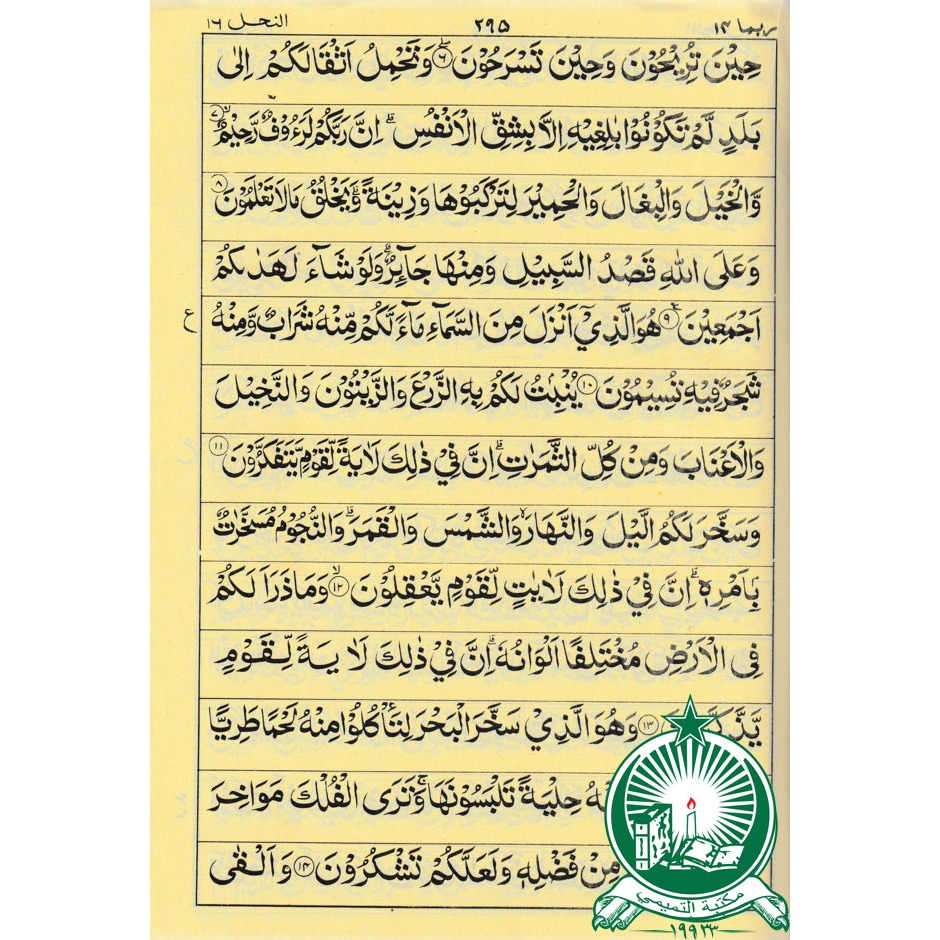 ربما ۱۴ ۲۹۵ النحل ۱۶
حِيْنَ تُرِيْحُوْنَ وَحِيْنَ تَسْرَحُوْنَ ۶ وَتَحْمِلُ اَثْقَالَكُمْ اِلٰى
بَلَدٍ لَّمْ تَكُوْنُوْا بٰلِغِيْهِ اِلَّا بِشِقِّ الْاَنْفُسِ ؕ اِنَّ رَبَّكُمْ لَرَءُوْفٌ رَّحِيْمٌ ۷
وَّالْخَيْلَ وَالْبِغَالَ وَالْحَمِيْرَ لِتَرْكَبُوْهَا وَزِيْنَةً ؕ وَيَخْلُقُ مَا لَا تَعْلَمُوْنَ ۸
وَعَلَى اللّٰهِ قَصْدُ السَّبِيْلِ وَمِنْهَا جَآئِرٌ ؕ وَلَوْ شَآءَ لَهَدٰىكُمْ
اَجْمَعِيْنَ ۹ هُوَ الَّذِيْۤ اَنْزَلَ مِنَ السَّمَآءِ مَآءً لَّكُمْ مِّنْهُ شَرَابٌ وَّمِنْهُ ع
شَجَرٌ فِيْهِ تُسِيْمُوْنَ ۱۰ يُنْۢبِتُ لَكُمْ بِهِ الزَّرْعَ وَالزَّيْتُوْنَ وَالنَّخِيْلَ
وَالْاَعْنَابَ وَمِنْ كُلِّ الثَّمَرٰتِ ؕ اِنَّ فِيْ ذٰلِكَ لَاٰيَةً لِّقَوْمٍ يَّتَفَكَّرُوْنَ ۱۱
وَسَخَّرَ لَكُمُ الَّيْلَ وَالنَّهَارَ ۙ وَالشَّمْسَ وَالْقَمَرَ ؕ وَالنُّجُوْمُ مُسَخَّرٰتٌۢ
بِاَمْرِهٖ ؕ اِنَّ فِيْ ذٰلِكَ لَاٰيٰتٍ لِّقَوْمٍ يَّعْقِلُوْنَ ۙ ۱۲ وَمَا ذَرَاَ لَكُمْ
فِى الْاَرْضِ مُخْتَلِفًا اَلْوَانُهٗ ؕ اِنَّ فِيْ ذٰلِكَ لَاٰيَةً لِّقَوْمٍ
يَّذَّ ۱۳ وَهُوَ الَّذِيْ سَخَّرَ الْبَحْرَ لِتَاْكُلُوْا مِنْهُ لَحْمًا طَرِيًّا
حِلْيَةً تَلْبَسُوْنَهَا ۚ وَتَرَى الْفُلْكَ مَوَاخِرَ
مِنْ فَضْلِهٖ وَلَعَلَّكُمْ تَشْكُرُوْنَ ۱۴ وَاَلْقٰى
مكتبة التميمي